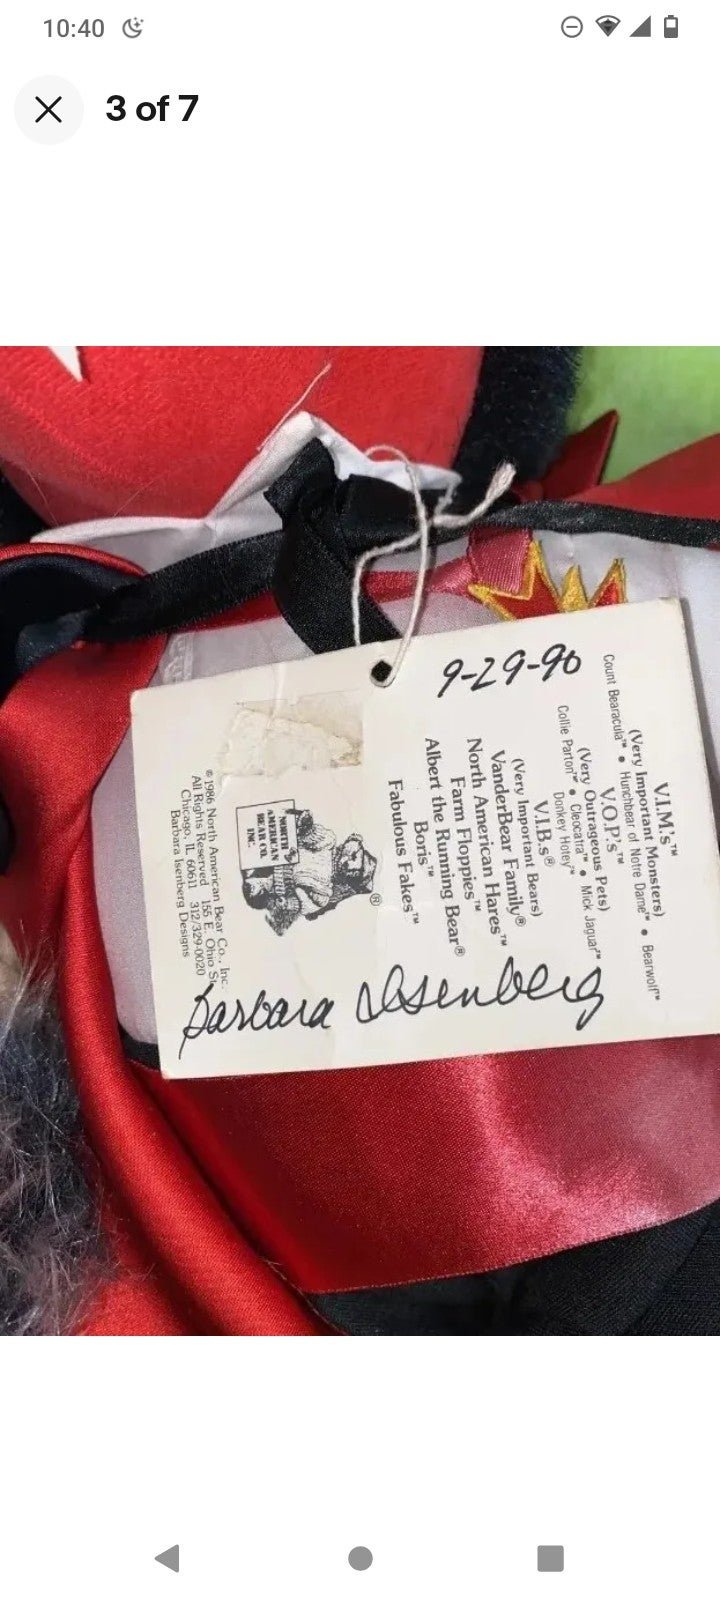 10:40
3 of 7
9-29-90
V.I.M.'s™
(Very Important Monsters)
Count Bearacula™ • Hunchbear of Notre Dame™ • Bearwolf™
V.O.P.'s™
(Very Outrageous Pets)
Collie Parton™ • Cleocatra™ • Mick Jaguar™
Donkey Hotey™
V.I.B.s®
(Very Important Bears)
VanderBear Family®
North American Hares™
Farm Floppies™
Albert the Running Bear®
Boris™
Fabulous Fakes™
NORTH
AMERICAN
BEAR CO.
INC.
®
© 1986 North American Bear Co., Inc.
All Rights Reserved 155 E. Ohio St.
Chicago, IL 60611 312/329-0020
Barbara Isenberg Designs
Barbara Isenberg